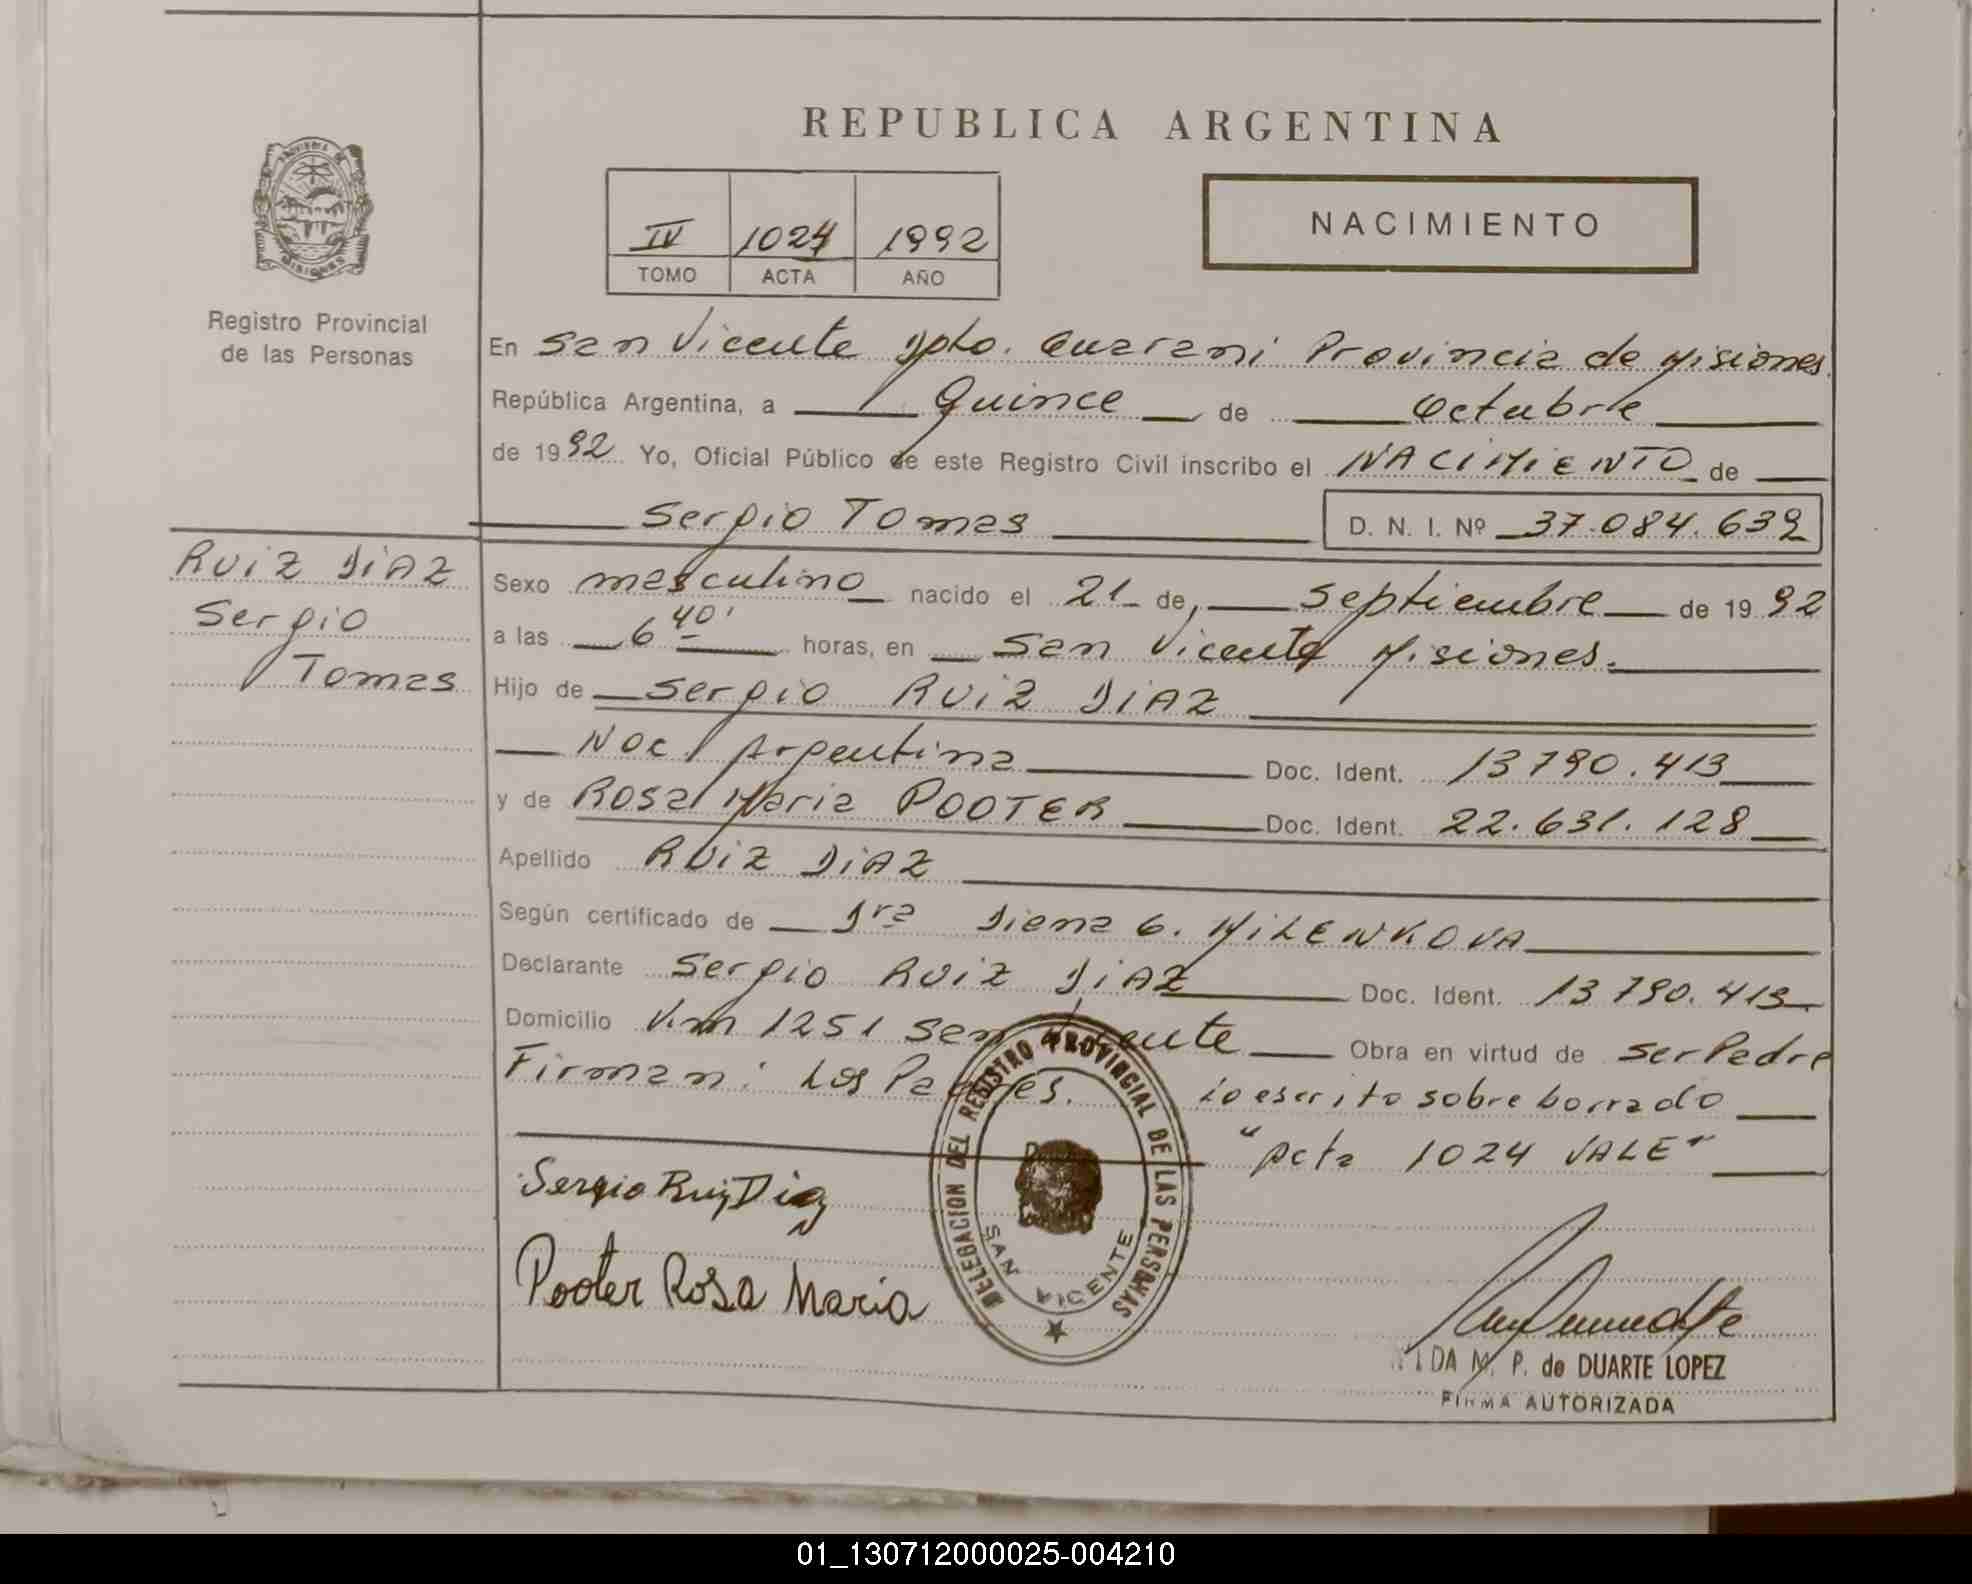 REPUBLICA ARGENTINA
PROVINCIA DE
MISIONES
Registro Provincial
de las Personas
IV 1024 1992
TOMO ACTA AÑO
NACIMIENTO
En San Vicente Dpto. Guarani Provincia de Misiones
República Argentina, a Quince de Octubre
de 1992 Yo, Oficial Público de este Registro Civil inscribo el NACIMIENTO de
Sergio Tomas D. N. I. Nº 37.084.639
RUIZ DIAZ
Sergio
Tomas
Sexo masculino nacido el 21 de, Septiembre de 1992
a las 6 40' horas, en San Vicente Misiones.
Hijo de Sergio RUIZ DIAZ
Nac Argentina Doc. Ident. 13790.413
y de Rosa Maria POOTER Doc. Ident. 22.631.128
Apellido RUIZ DIAZ
Según certificado de Dra Diana G. MILENKOVA
Declarante Sergio RUIZ DIAZ Doc. Ident. 13790.413
Domicilio Km 1251 San Vicente Obra en virtud de ser Padre
Firman: Los Padres. lo escrito sobre borrado
"Acta 1024 VALE"
Sergio Ruiz Diaz
Pooter Rosa Maria
DELEGACION DEL REGISTRO PROVINCIAL DE LAS PERSONAS
SAN VICENTE
M. P. de DUARTE LOPEZ
FIRMA AUTORIZADA
01_130712000025-004210